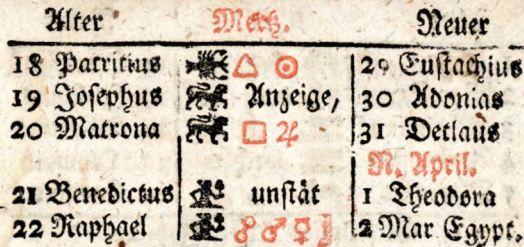 Alter Mertz. Neuer
18 Patritius △ ☉ 29 Eustachius
19 Josephus Anzeige, 30 Adonias
20 Matrona □ ♃ 31 Detlaus
N. April.
21 Benedictus unstät 1 Theodora
22 Raphael ☍ ♂ ♀ 2 Mar. Egypt.